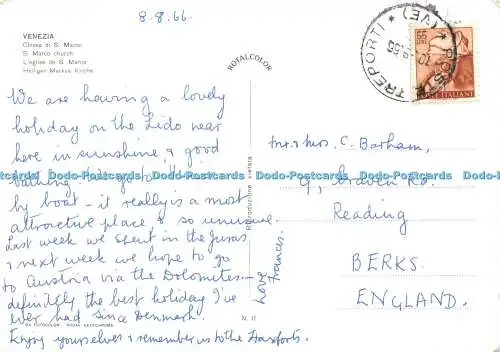 8.8.66.
VENEZIA
Chiesa di S. Marco
S. Marco church
L'église de S. Marco
Heiliger Markus Kirche
ROTALCOLOR
Riproduzione vietata
We are having a lovely
holiday on the Lido near
here in sunshine, & good
bathing.
by boat - it really is a most
attractive place, & so unusual
Last week we spent in the Juras
& next week we hope to go
to Austria via the Dolomites -
definitely the best holiday I've
ever had since Denmark.
Enjoy yourselves & remember us to the
Love
Frances.
N. 11
TREPORTI * (VE) *
POSTE ITALIANE
55
Mr. & Mrs. C. Barham,
9, Craven Rd.
Reading
BERKS.
ENGLAND.
Dodo-Postcards Dodo-Postcards Dodo-Postcards Dodo-Postcards Dodo-Postcards